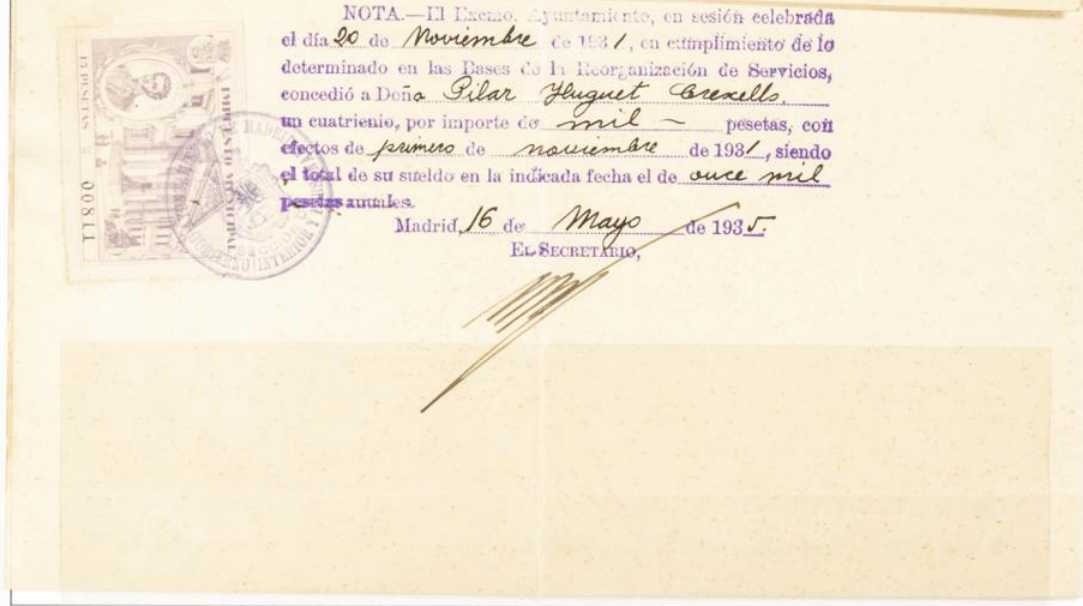 NOTA.—El Excmo. Ayuntamiento, en sesión celebrada
el día 20 de Noviembre de 1931, en cumplimiento de lo
determinado en las Bases de la Reorganización de Servicios,
concedió a Doña Pilar Huguet Crexells.
un cuatrienio, por importe de mil — pesetas, con
efectos de primero de noviembre de 1931, siendo
el total de su sueldo en la indicada fecha el de once mil
pesetas anuales.
Madrid, 16 de Mayo de 1935.
EL SECRETARIO,
15 PESETAS
IMPUESTO MUNICIPAL
00811
MADRID
GOBIERNO INTERIOR Y